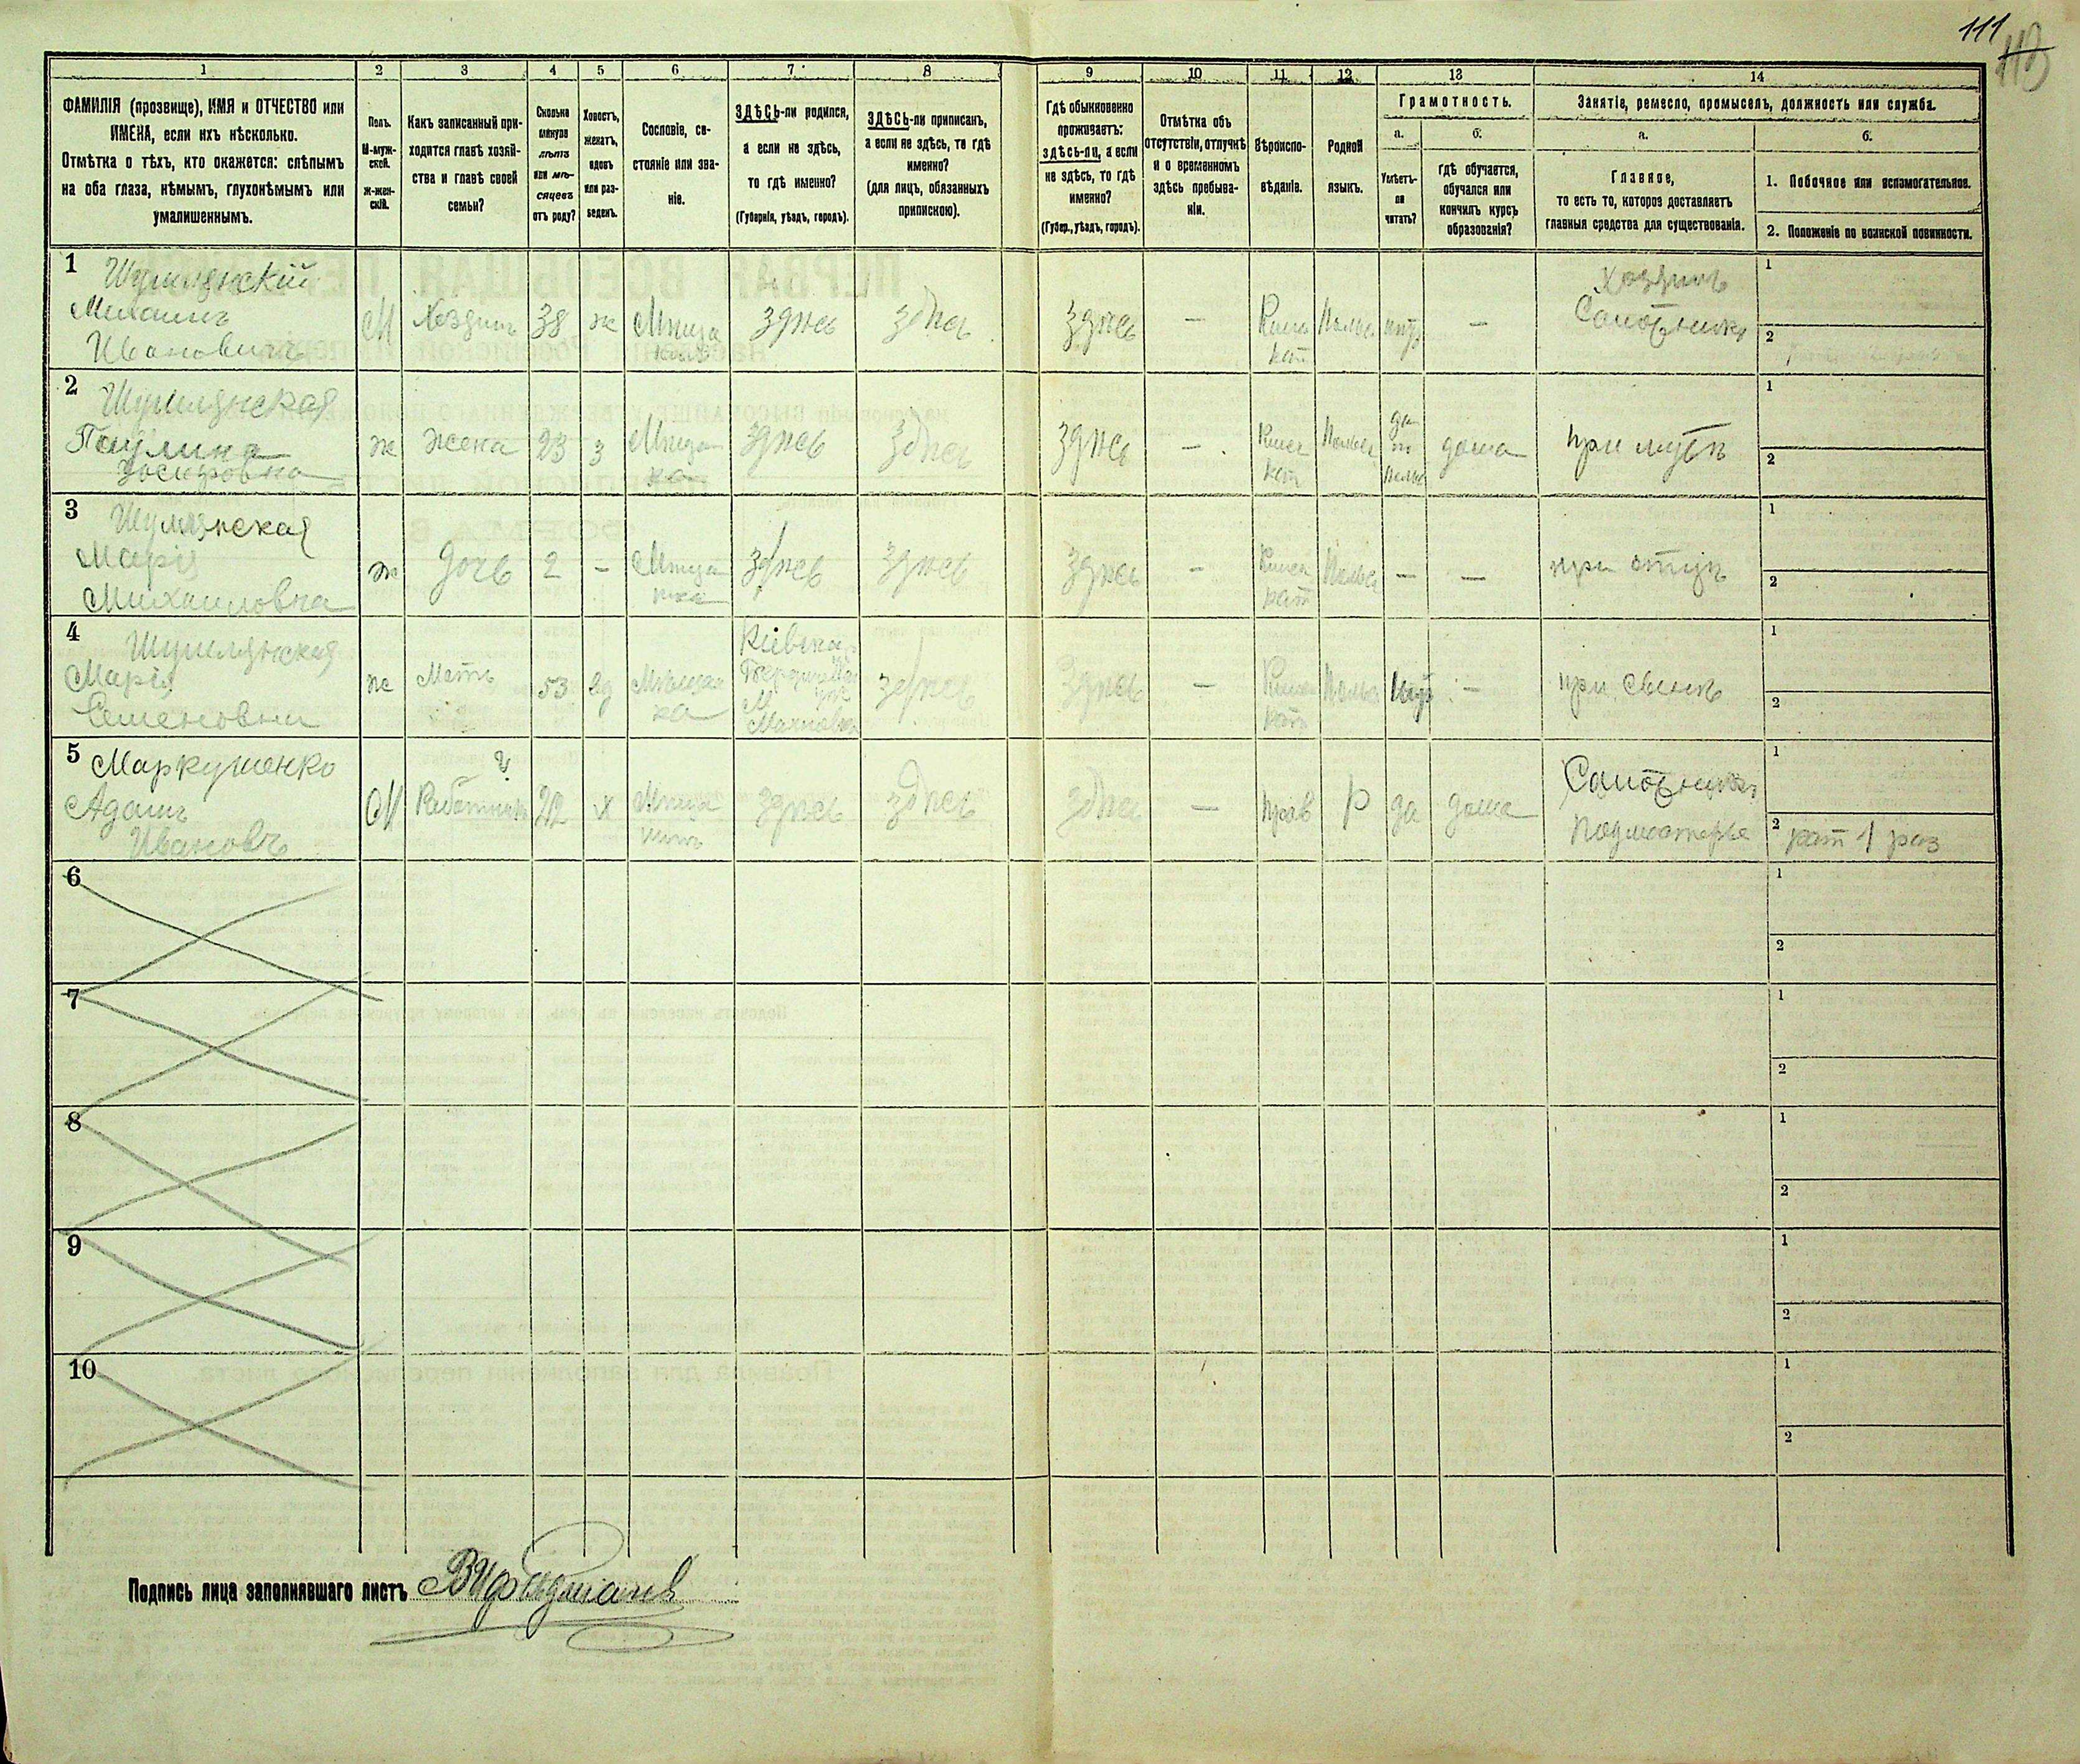 111
113
1 2 3 4 5 6 7 8 9 10 11 12 13 14
ФАМИЛІЯ (прозвище), ИМЯ и ОТЧЕСТВО или
ИМЕНА, если ихъ нѣсколько.
Отмѣтка о тѣхъ, кто окажется: слѣпымъ
на оба глаза, нѣмымъ, глухонѣмымъ или
умалишеннымъ.
Полъ.
М-муж-
ской.
Ж-жен-
скій.
Какъ записанный при-
ходится главѣ хозяй-
ства и главѣ своей
семьи?
Сколько
минуло
лѣтъ
или мѣ-
сяцевъ
отъ роду?
Холостъ,
женатъ,
вдовъ
или раз-
веденъ.
Сословіе, со-
стояніе или зва-
ніе.
ЗДѢСЬ-ли родился,
а если не здѣсь,
то гдѣ именно?
(Губернія, уѣздъ, городъ).
ЗДѢСЬ-ли приписанъ,
а если не здѣсь, то гдѣ
именно?
(для лицъ, обязанныхъ
припискою).
Гдѣ обыкновенно
проживаетъ:
здѣсь-ли, а если
не здѣсь, то гдѣ
именно?
(Губер., уѣздъ, городъ).
Отмѣтка объ
отсутствіи, отлучкѣ
и о временномъ
здѣсь пребыва-
ніи.
Вѣроиспо-
вѣданіе.
Родной
языкъ.
Грамотность.
а.
Умѣетъ-
ли
читать?
б.
гдѣ обучается,
обучался или
кончилъ курсъ
образованія?
Занятіе, ремесло, промыселъ, должность или служба.
а.
Главное,
то есть то, которое доставляетъ
главныя средства для существованія.
б.
1. Побочное или вспомогательное.
2. Положеніе по воинской повинности.
1 Шумлянскій
Михаилъ
Ивановичъ
М
Хозяинъ
38
ж
здѣсь
здѣсь
здѣсь
—
кат
—
Хозяинъ
Сапожникъ
1
2
2 Шумлянская
Паулина
Іосифовна
ж
жена
23
з
Мѣщан
ка
здѣсь
здѣсь
здѣсь
—
кат
да
по
дома
при мужѣ
1
2
3 Шумлянская
Марія
Михаиловна
ж
дочь
2
—
здѣсь
здѣсь
здѣсь
—
кат
—
—
при отцѣ
1
2
4 Шумлянская
Марія
Семеновна
ж
Мать
53
вд
Мѣщан
ка
Кіевская
М
Махновка
здѣсь
здѣсь
—
кат
—
при сынѣ
1
2
5 Маркушенко
Адамъ
Ивановъ
М
Работникъ
22
х
здѣсь
здѣсь
здѣсь
—
прав
р
да
дома
Сапожникъ
подмастерье
1
2 рат 1 раз
6
1
2
7
1
2
8
1
2
9
1
2
10
1
2
Подпись лица заполнявшаго листъ